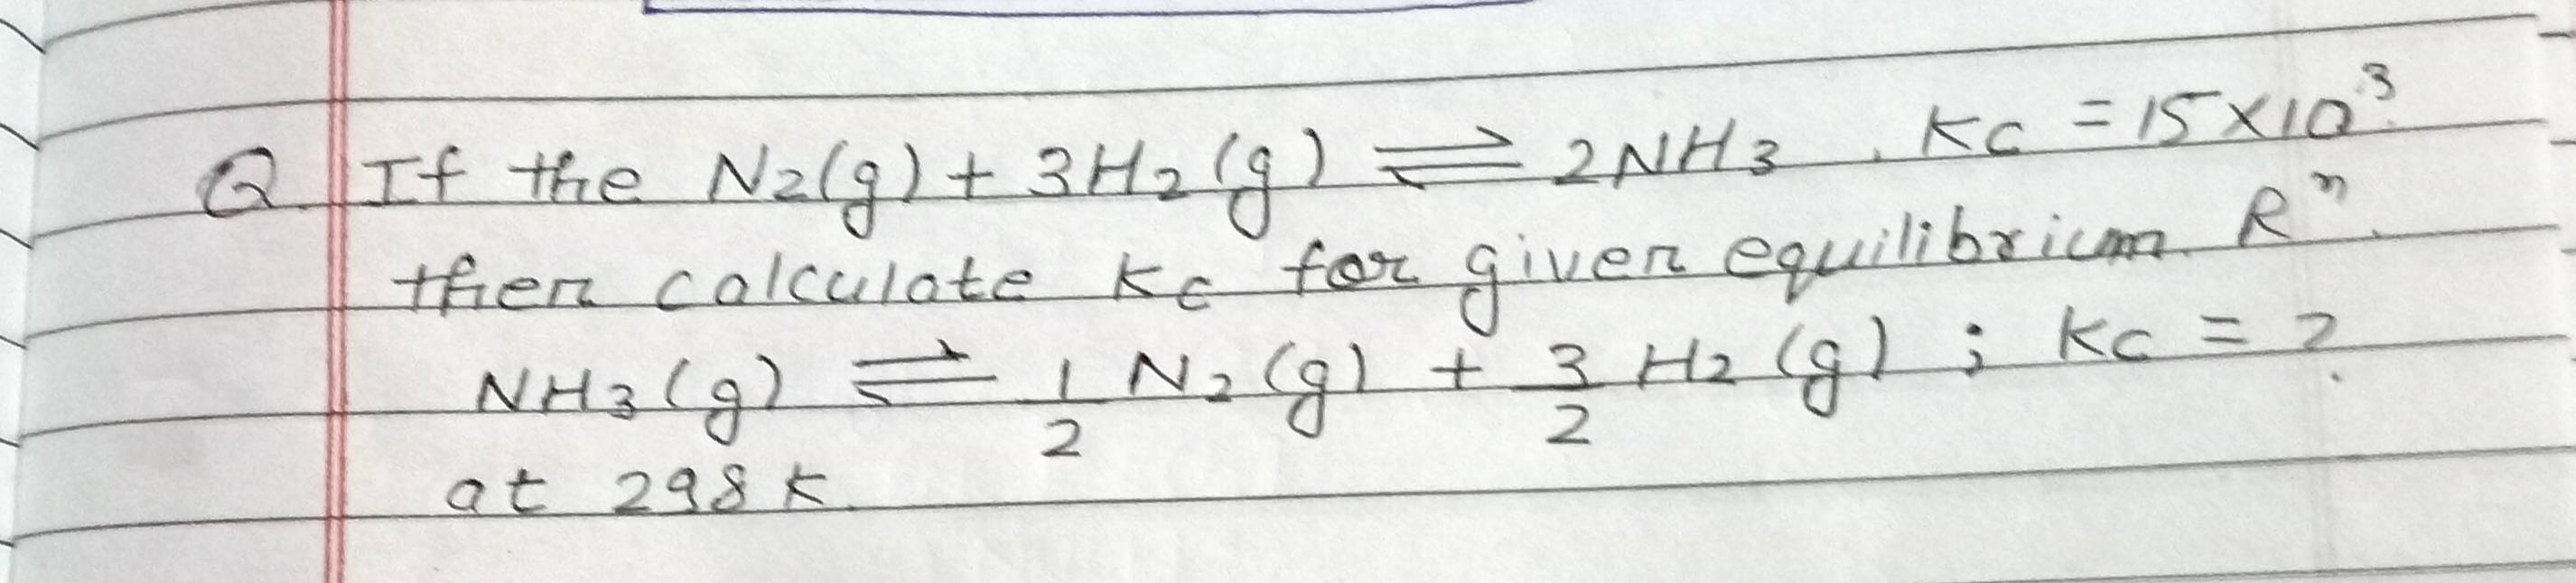 Q. If the N₂(g) + 3H₂(g) ⇌ 2NH₃ . Kc = 15×10³
then calculate Kc for given equilibrium Rⁿ.
NH₃(g) ⇌ 1/2 N₂(g) + 3/2 H₂(g) ; Kc = ?
at 298 K.